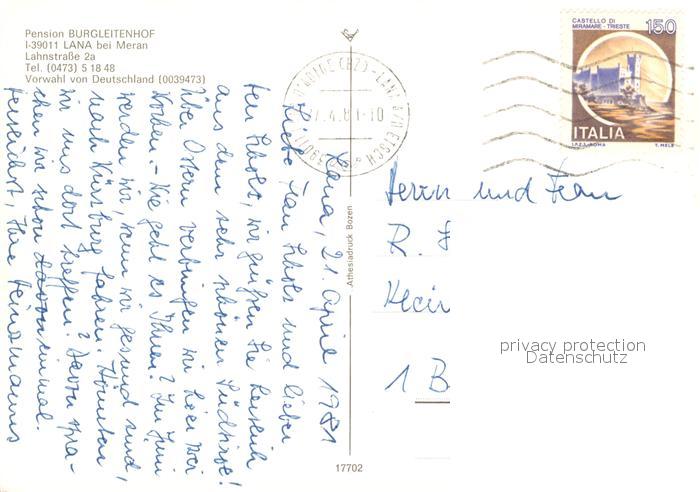 Pension BURGLEITENHOF
I-39011 LANA bei Meran
Lahnstraße 2a
Tel. (0473) 5 18 48
Vorwahl von Deutschland (0039473)
CASTELLO DI
MIRAMARE - TRIESTE
150
ITALIA
I.P.Z.S. ROMA
T. MELE
Lana, 21. April 1981
Liebe Frau und lieber
wir grüßen Sie herzlich
aus dem sehr schönen Südtirol!
Über Ostern verbringen wir hier drei
Wochen. - Wie geht es Ihnen? Im Juni
werden wir, wenn wir gesund sind,
nach Würzburg fahren. Könnten
wir uns dort treffen? Davon spra-
chen wir schon einmal.
Herzlichst, Ihre
Athesiadruck Bozen
17702
Herrn und Frau
R.
1 B
privacy protection
Datenschutz